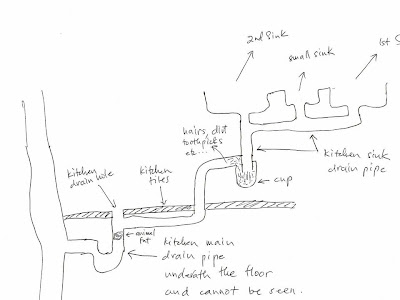 2nd Sink
small sink
1st S
hairs, dirt
toothpicks
etc....
kitchen
drain hole
kitchen
tiles
cup
kitchen sink
drain pipe
animal
fat
kitchen main
drain pipe
underneath the floor
and cannot be seen.